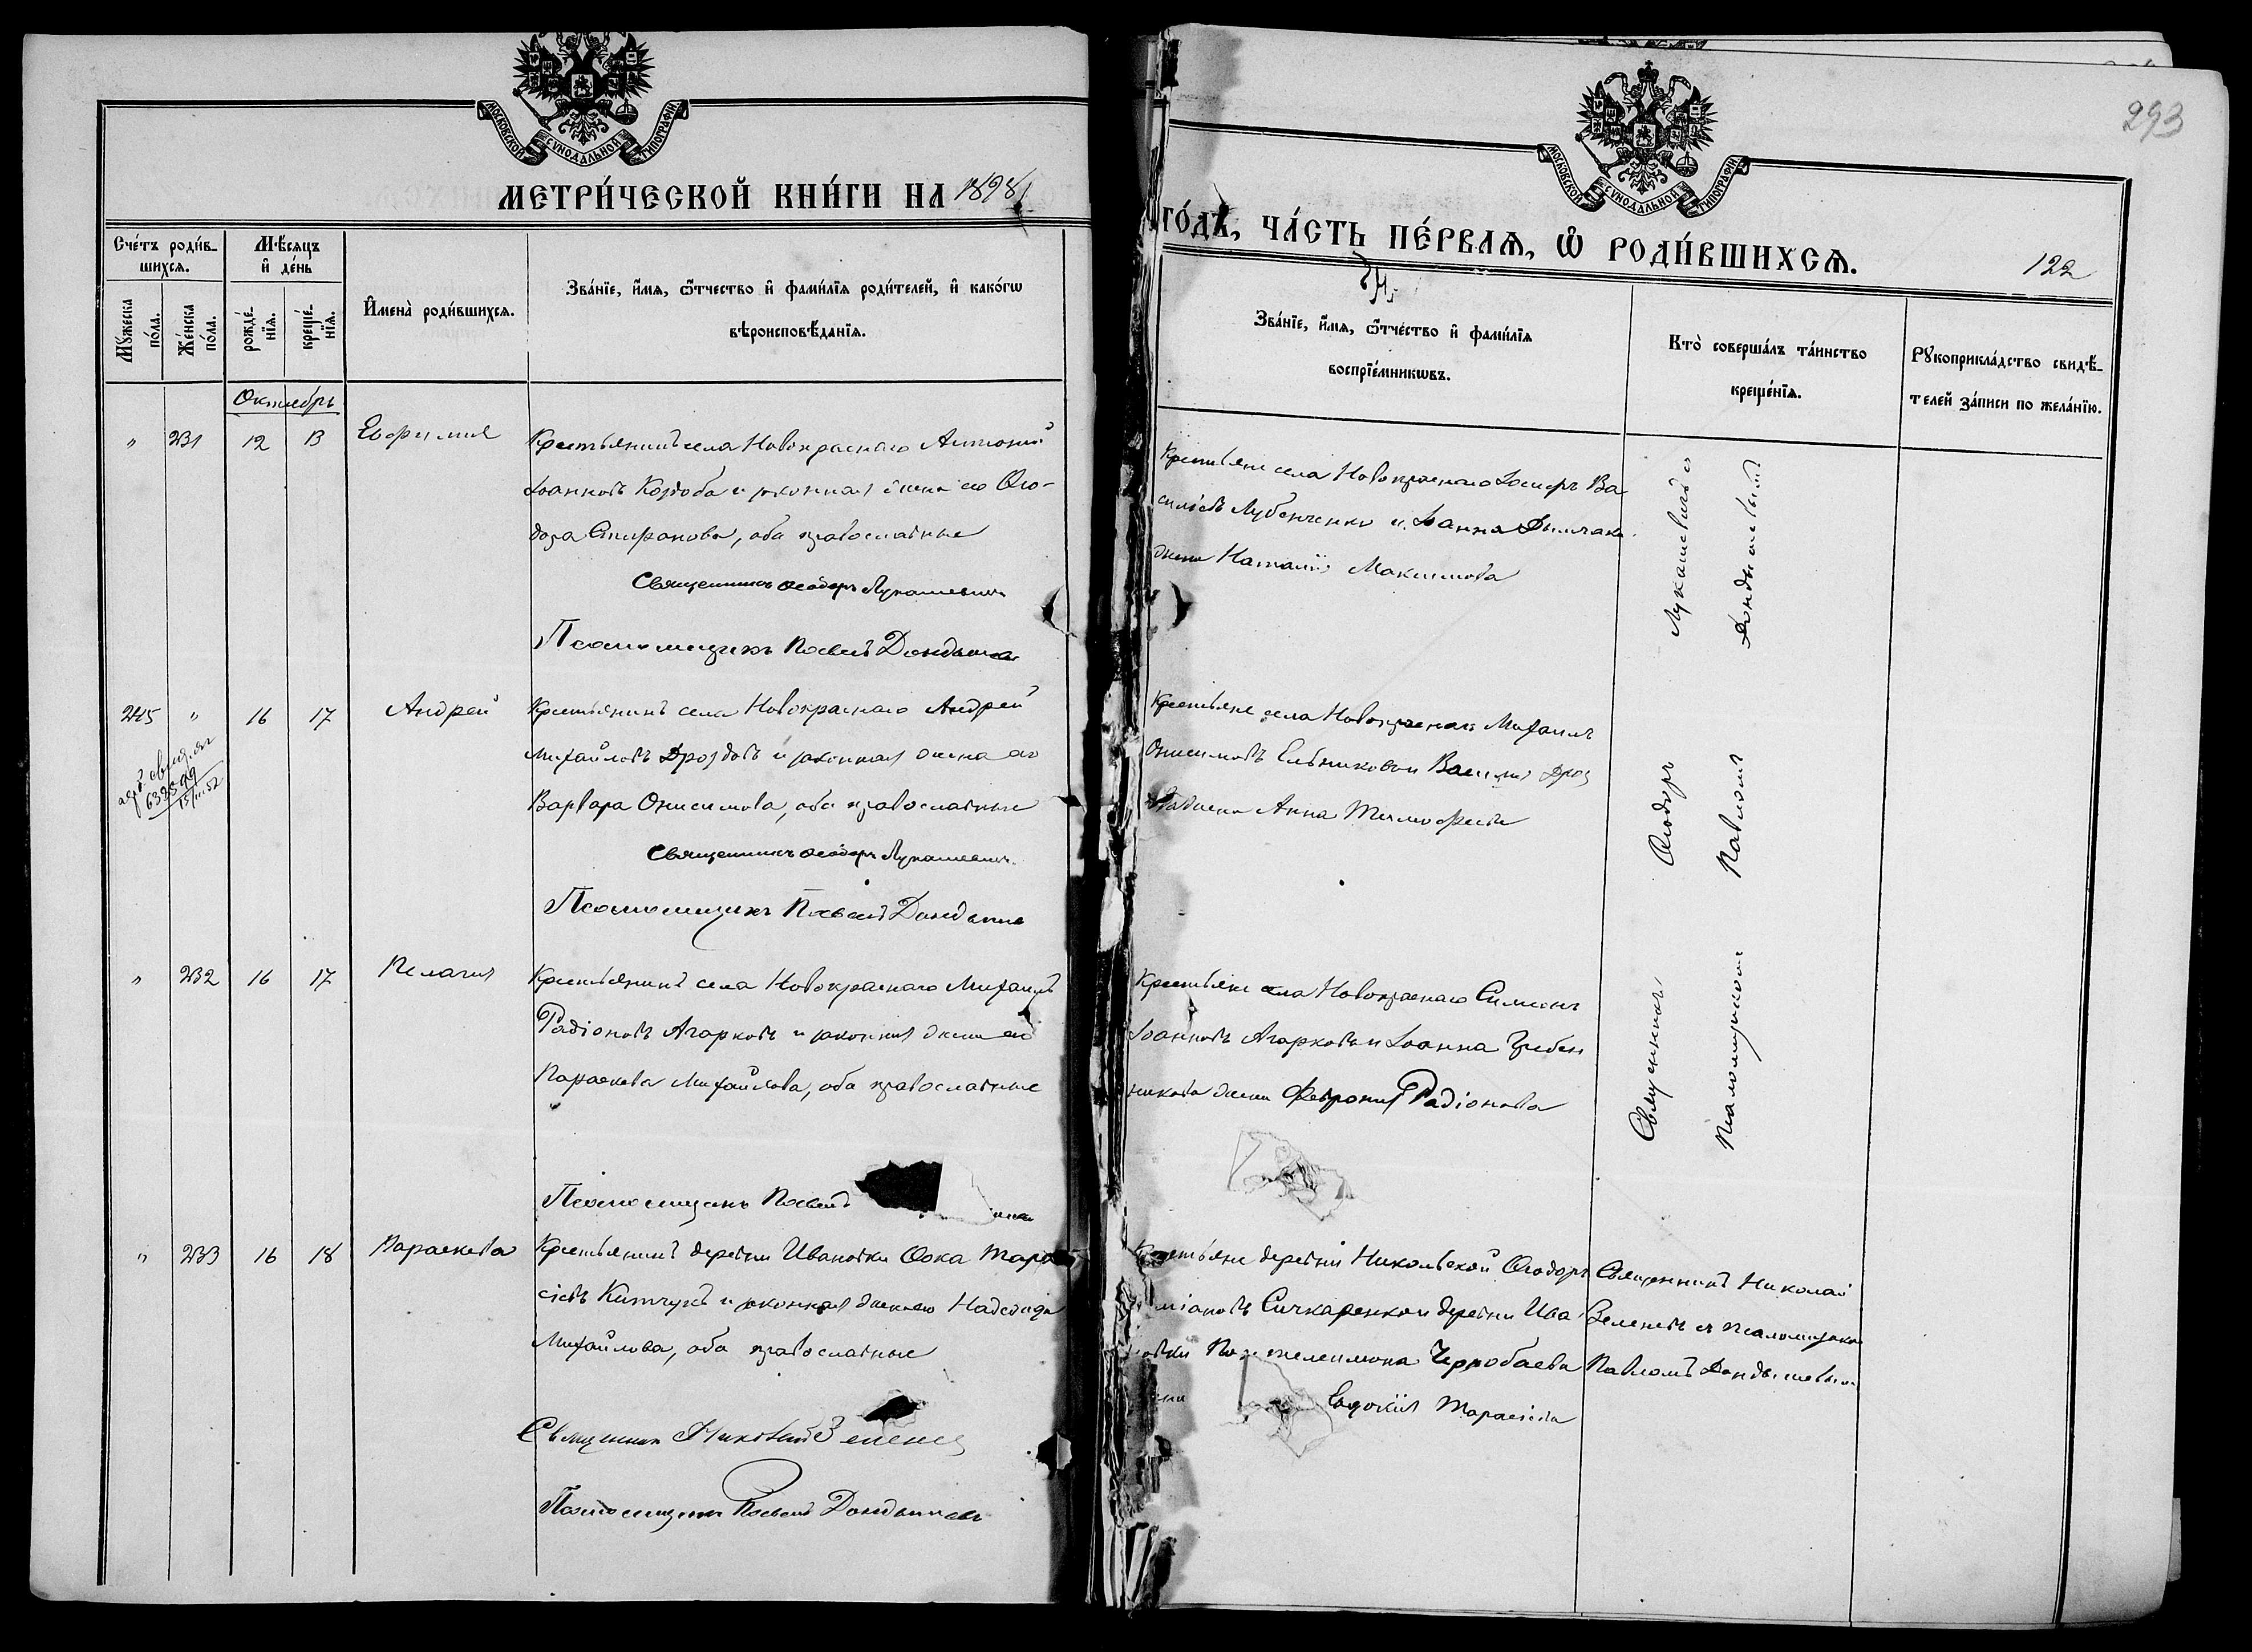 293
МОСКОВСКОЙ СѴНОДАЛЬНОЙ ТИПОГРАФІИ
МОСКОВСКОЙ СѴНОДАЛЬНОЙ ТИПОГРАФІИ
МЕТРИ́ЧЕСКОЙ КНИ́ГИ НА 1898
ГО́ДЪ, ЧА́СТЬ ПЕ́РВАЯ, Ѿ РОДИ́ВШИХСЯ.
122
Сче́тъ роди́в-
шихся.
Мѣ́сяцъ
и҆ де́нь
Мꙋ́жеска
по́ла.
Же́нска
по́ла.
рожде́-
нїѧ.
креще́-
нїѧ.
И҆мена̀ роди́вшихся.
Зва́нїе, и҆́мѧ, ѻ҆́тчество и҆ фами́лїѧ роди́телей, и҆ како́гѡ
вѣроисповѣ́данїѧ.
Зва́нїе, и҆́мѧ, ѻ҆́тчество и҆ фами́лїѧ
воспрїе́мникѡвъ.
Кто̀ соверша́лъ та́инство
креще́нїѧ.
Рꙋкоприкла́дство свидѣ́-
телей за́писи по жела́нїю.
Октябрь
" 231 12 13 Евфимия
Крестьянинъ села Новокраснаго Антоній
Іоанновъ Коздоба и законная жена его Ѳео-
дора Спиранова, оба православные
Священникъ Ѳеодоръ Лукашевичъ
Псаломщикъ Павелъ Дондышевъ
Крестьяне села Новокраснаго Іосифъ Ва
силіевъ Лубенченко и Іоанна Дымчака
жена Наталія Максимова
245 " 16 17 Андрей
63 2
15/III.52
Крестьянинъ села Новокраснаго Андрей
Михайловъ Дроздовъ и законная жена его
Варвара Онисимова, оба православные
Священникъ Ѳеодоръ Лукашевичъ
Псаломщикъ Павелъ Дондышевъ
Крестьяне села Новокраснаго Михаилъ
Онисимовъ Ельниковъ и Василія Дроз
дова жена Анна Тимофеева
" 232 16 17 Пелагия
Крестьянинъ села Новокраснаго Михаилъ
Радіоновъ Агарковъ и законная жена его
Параскева Михайлова, оба православные
Псаломщикъ Павелъ
Крестьяне села Новокраснаго Симеонъ
Іоанновъ Агарковъ и Іоанна Гребен
никова жена Феврония Радіонова
Священникъ Ѳеодоръ Лукашевичъ съ
Псаломщикомъ Павломъ Дондышевымъ
" 233 16 18 Параскева
Крестьянинъ деревни Ивановки Ѳока Тара
сіевъ Китчукъ и законная жена его Надежда
Михайлова, оба православные
Священникъ Николай Зеленев
Псаломщикъ Павелъ Дондышевъ
Крестьяне деревни Никольской Ѳеодоръ
міановъ Сичкаренко и деревни Ива
новки Пантелеимона Чернобаева
жена Евдокія Тарасіева
Священникъ Николай
Зеленевъ съ псаломщикомъ
Павломъ Дондышевымъ